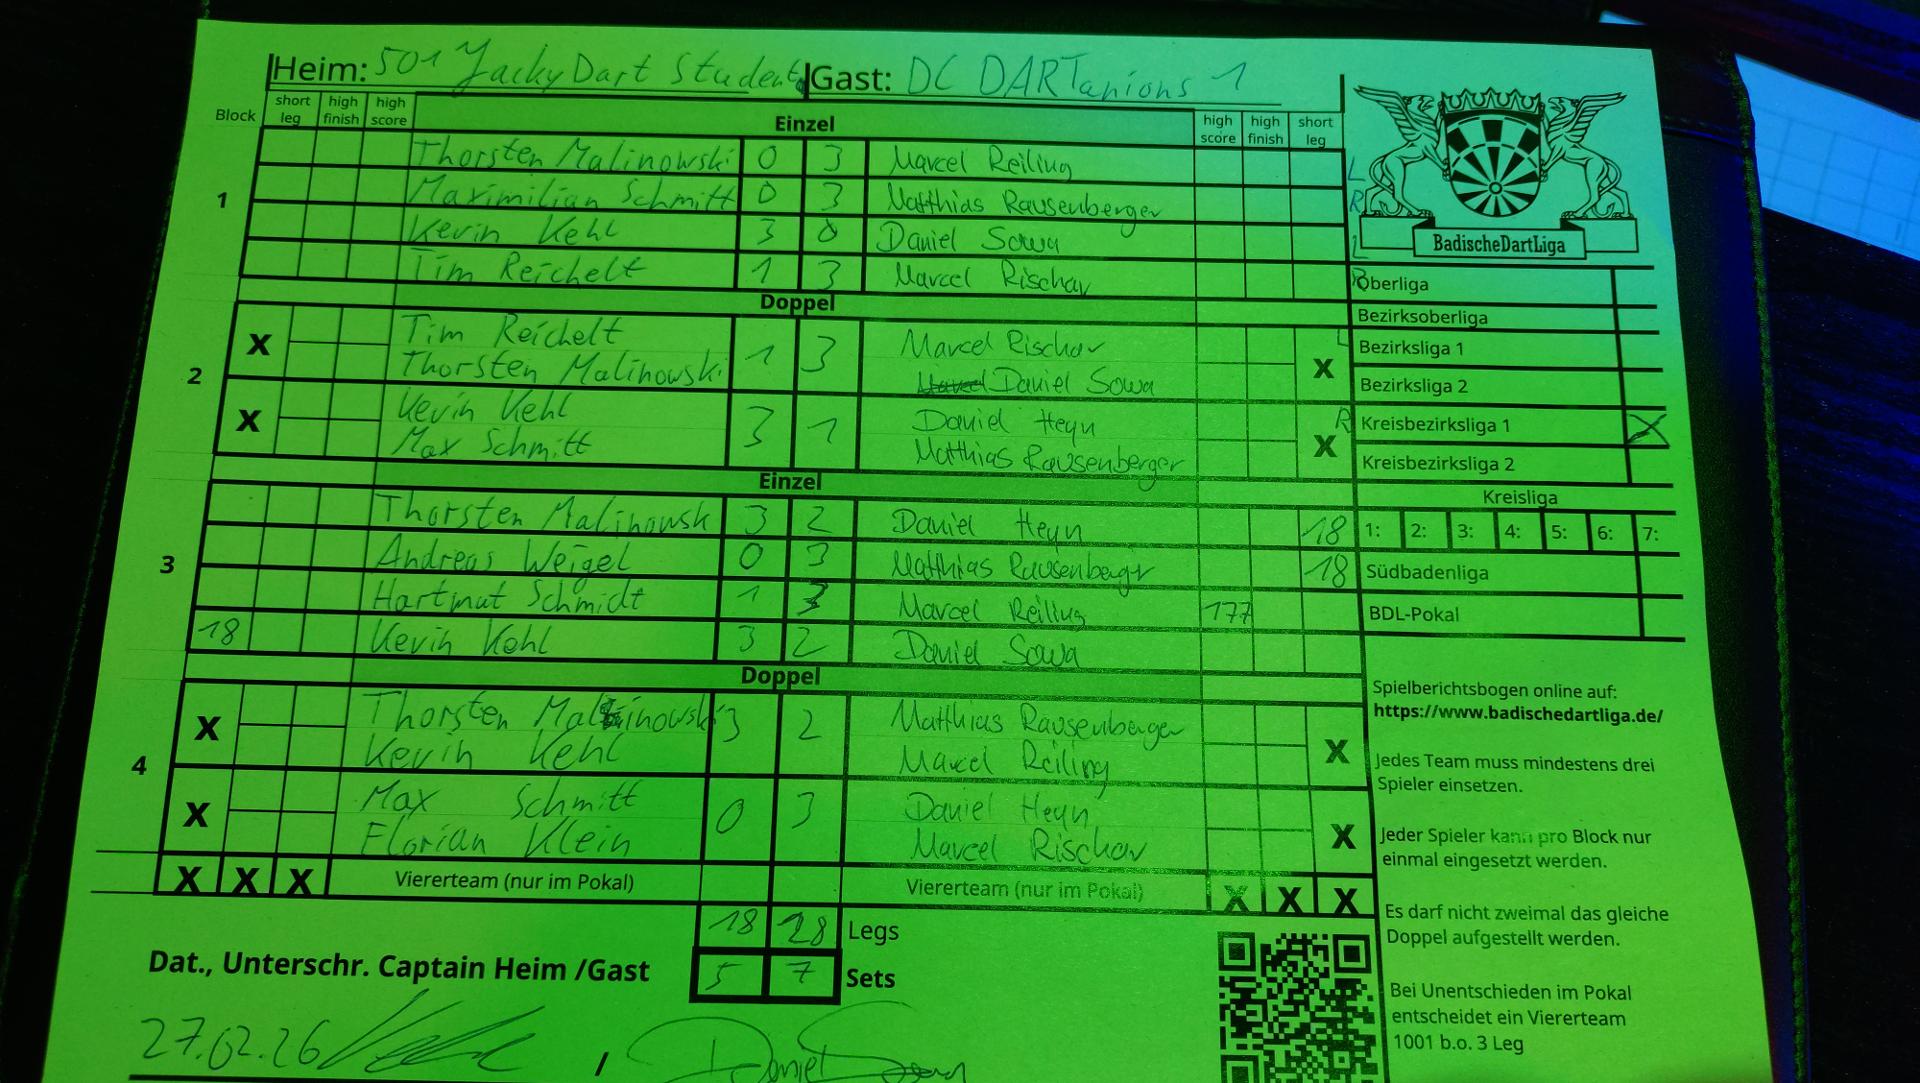 Heim: 501 Jacky Dart Students Gast: DC DARTanions 1
Block short leg high finish high score Einzel high score high finish short leg
1
Thorsten Malinowski 0 3 Marcel Reiling L
Maximilian Schmitt 0 3 Matthias Rausenberger R
Kevin Kehl 3 0 Daniel Sowa L
Tim Reichelt 1 3 Marcel Rischar R
BadischeDartLiga
Oberliga
Doppel
Bezirksoberliga
2
X Tim Reichelt 1 3 Marcel Rischar X L
Thorsten Malinowski Daniel Sowa
Bezirksliga 1
Bezirksliga 2
X Kevin Kehl 3 1 Daniel Heyn X R
Max Schmitt Matthias Rausenberger
Kreisbezirksliga 1 X
Kreisbezirksliga 2
Einzel
Kreisliga
1: 2: 3: 4: 5: 6: 7:
3
Thorsten Malinowsk 3 2 Daniel Heyn 18
Andreas Weigel 0 3 Matthias Rausenberger 18
Hartmut Schmidt 1 3 Marcel Reiling 177
18 Kevin Kehl 3 2 Daniel Sowa
Südbadenliga
BDL-Pokal
Doppel
4
X Thorsten Malinowski 3 2 Matthias Rausenberger X
Kevin Kehl Marcel Reiling
X Max Schmitt 0 3 Daniel Heyn X
Florian Klein Marcel Rischar
X X X Viererteam (nur im Pokal) Viererteam (nur im Pokal) X X X
18 28 Legs
5 7 Sets
Dat., Unterschr. Captain Heim /Gast
27.02.26 / Daniel Sowa
Spielberichtsbogen online auf:
https://www.badischedartliga.de/
Jedes Team muss mindestens drei
Spieler einsetzen.
Jeder Spieler kann pro Block nur
einmal eingesetzt werden.
Es darf nicht zweimal das gleiche
Doppel aufgestellt werden.
Bei Unentschieden im Pokal
entscheidet ein Viererteam
1001 b.o. 3 Leg